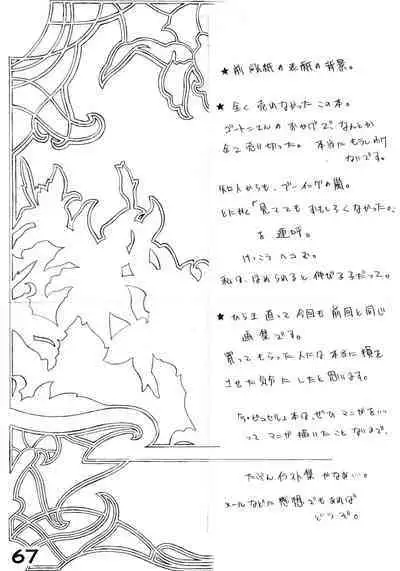 ★ 前の表紙の背景。
★ 全く売れなかったこの本。
のおかげでなんとか
全て売り切った。本当にもうしわけ
ないです。
知人からも、ブーイングの嵐。
「見ててもおもしろくなかった。」
を連呼。
けっこうヘコむ。
私は、ほめられると伸びる子だって。
★ 今回も前回と同じ
画集です。
買ってもらった人には本当に損を
させた気分にしたと思います。
本は、ぜひマンガを
って マンガ描いたことないので、
たぶんイラスト集やなぁ…。
メールなどに感想でもあれば
どうぞ。
67